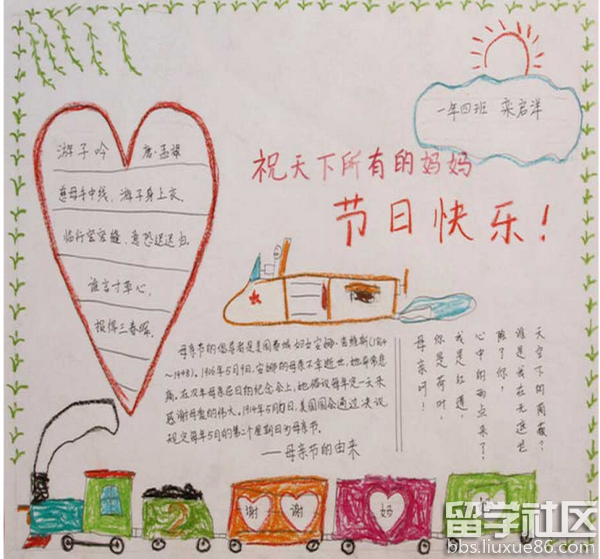 一年四班 栾启洋
祝天下所有的妈妈
节日快乐!
游子吟 唐·孟郊
慈母手中线,游子身上衣
临行密密缝,意恐迟迟归
谁言寸草心,
报得三春晖
母亲节的倡导者是美国费城妇女安娜·查维斯(1864
~1948).1906年5月9日,安娜的母亲不幸逝世,她非常悲
痛。在次年母亲忌日的纪念会上,她倡议每年定一天来
感谢母爱的伟大。1914年5月 日,美国国会通过决议
规定每年5月的第二个星期日为母亲节。
——母亲节的由来
母亲呵!
你是荷叶,
我是红莲,
心中的雨点来了,
除了你,
谁是我在无遮拦
天空下的荫蔽?
谢 谢 妈
2
留学社区
bbs.liuxue86.com